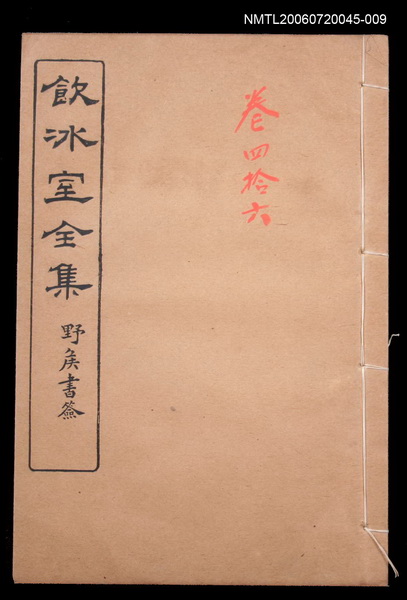 NMTL20060720045-009
卷四拾六
飲冰室全集
野矦書簽